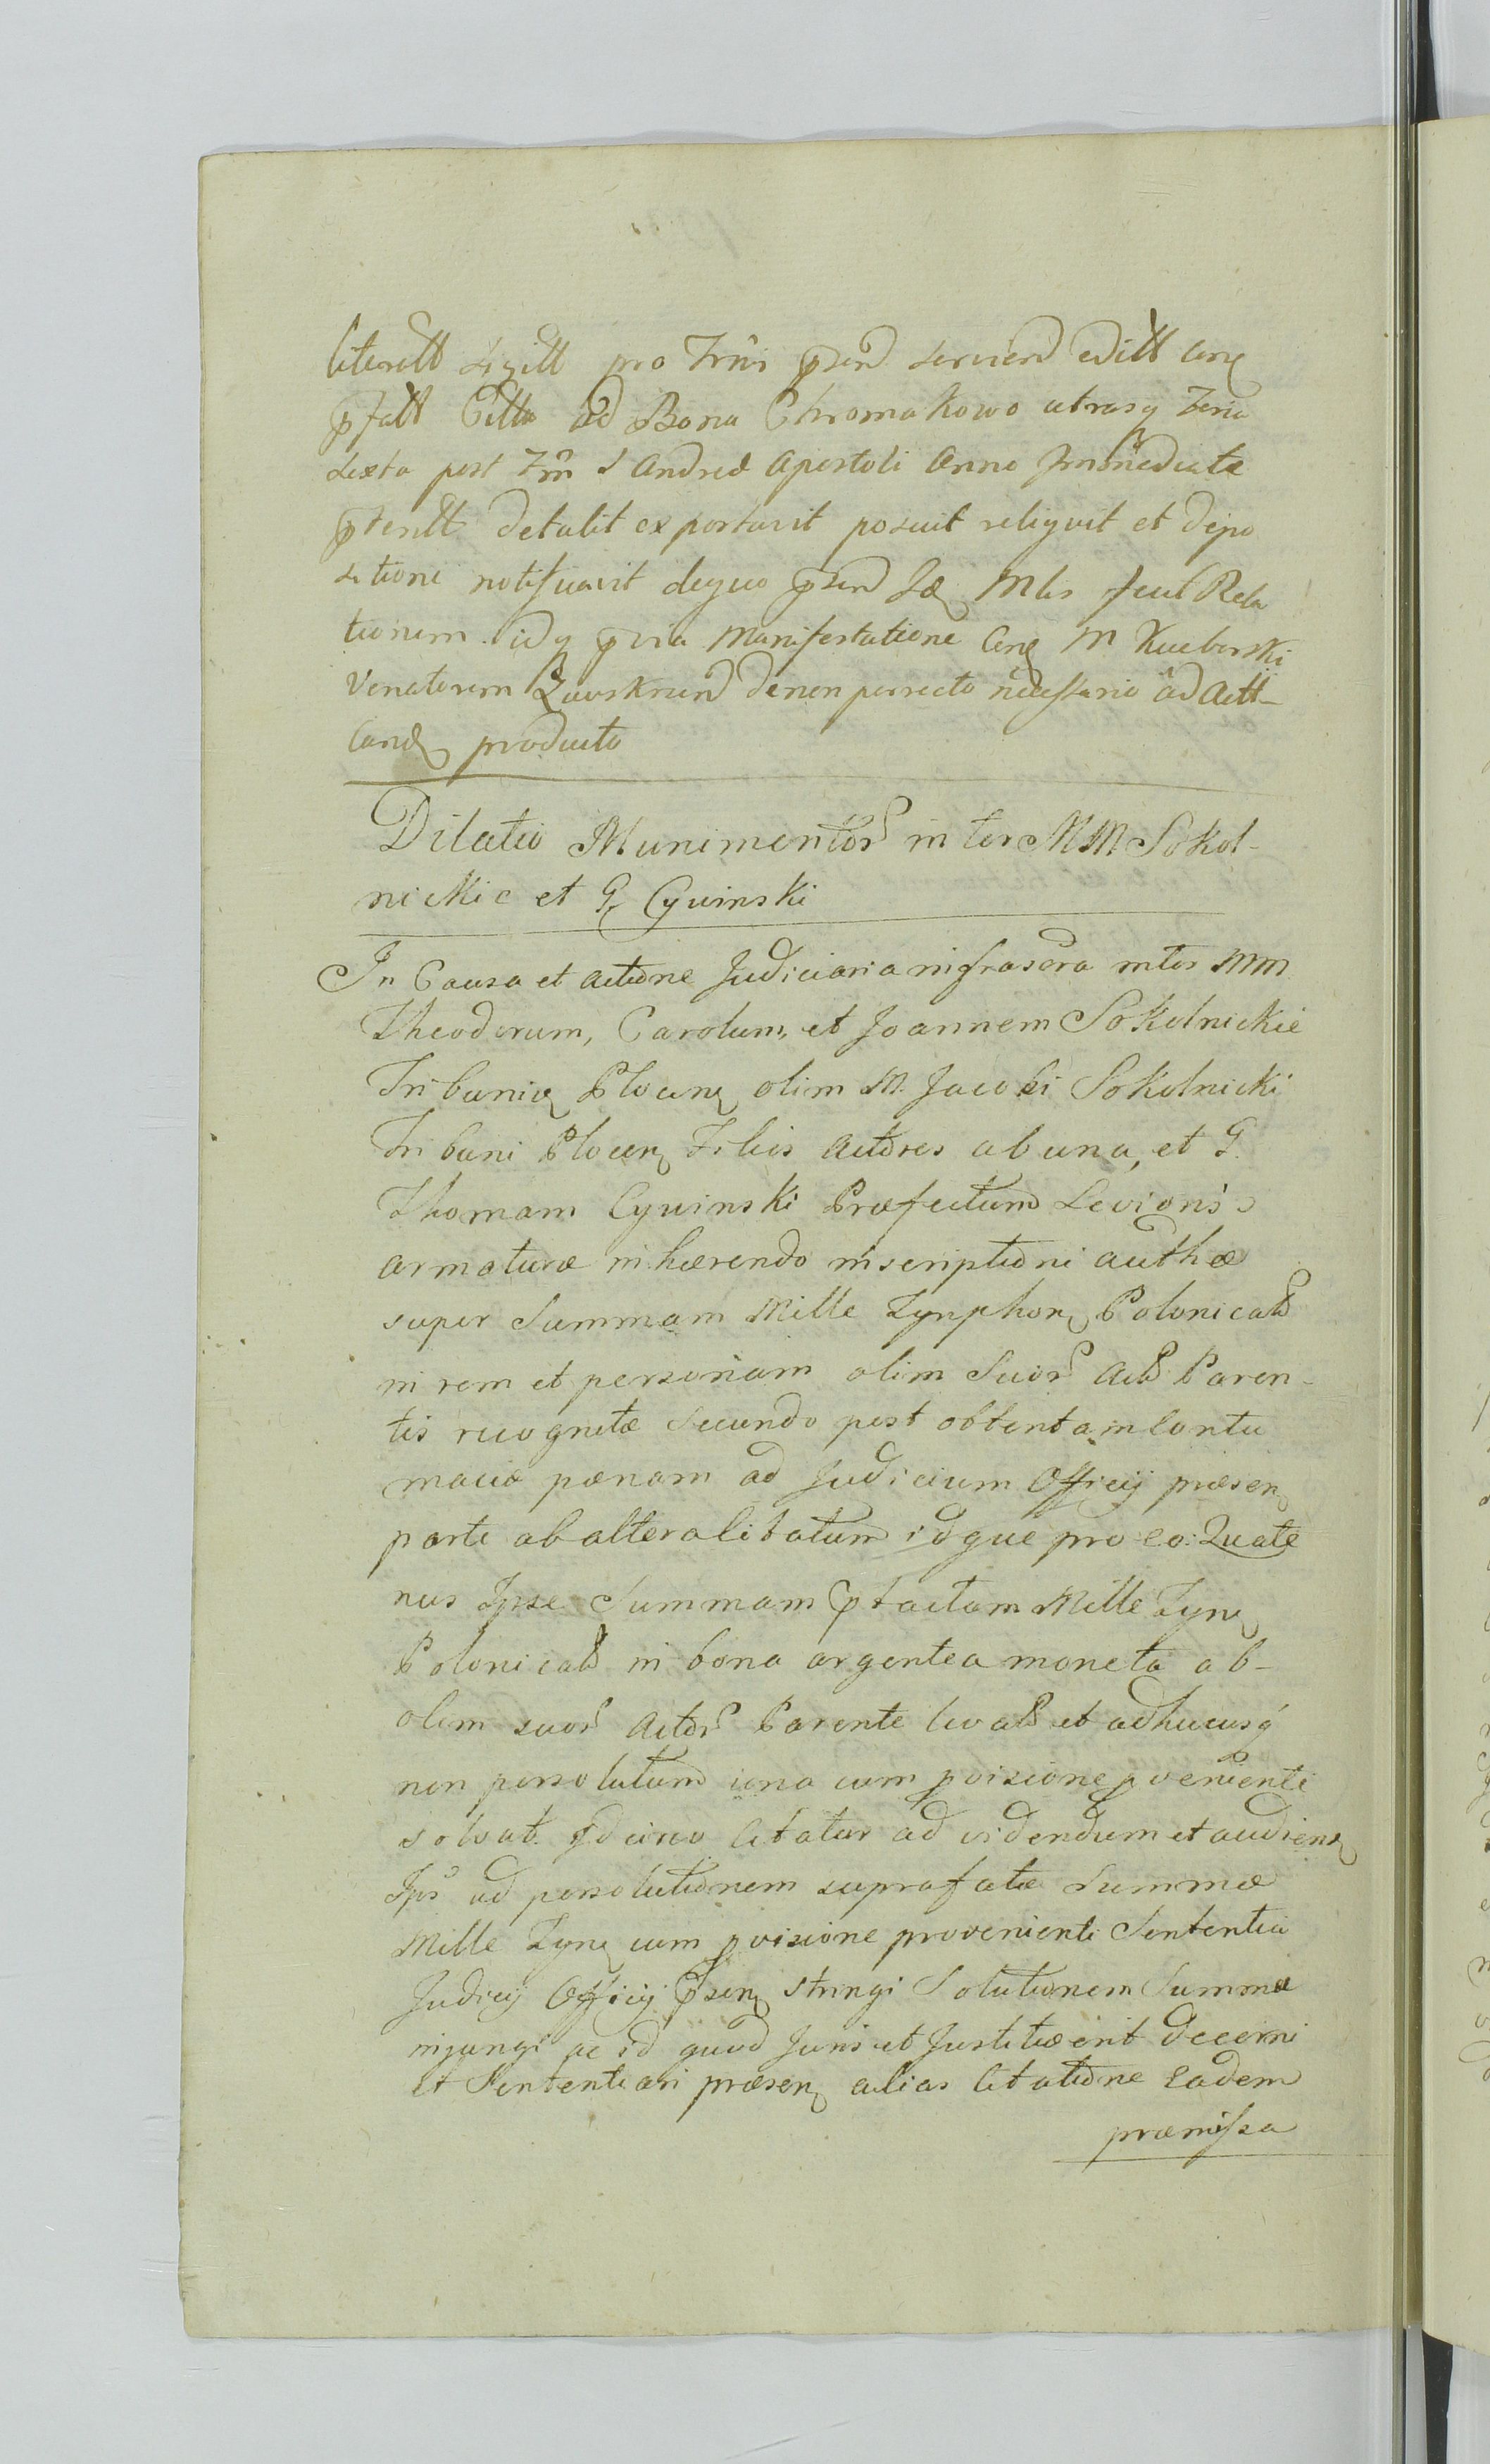 literatt Sigill pro Trnis prsen servien editt Cone
pfatt Citta ad Bona Chromakowo utrasq Feria
Sexta post Fm S Andreæ Apostoli Anno Immediate
ptentt detulit exportavit posuit reliquit et depo
sitione notificavit dequo prsen Mlis fecit Rela
tionem idq pvia Manifestatione M Kucborski
Venatorem Zawskrun denon perrecto necessario ad Actt
Cand producta
Dilatio Munimentor inter MM Sokol-
nickie et G Cywinski
In Causa et actione Judiciaria infrascra inter MM
Theodorum, Carolum, et Joannem Sokolnickie
Tribuni Plocen olim M. Jacobi Sokolnicki
Tribuni Plocen Filios actores ab una, et G.
Thomam Cywinski Præfectum Levioris
armaturæ inhærendo inscriptioni auth
super Summam Mille Tynphon Polonical
in rem et personam olim Suor act Paren-
tis recognitæ Secundo post obtentam Contu
maciæ pænam ad Judicium Officij præsen
parte ab altera Citatum idque pro eo: Quate
nus Ipse Summam ptactam Mille Tyn
Polonical in bona argentea moneta ab-
olim suor actor Parente levat et adhucusq
non persolutum una cum pvisione pvenienti
solvat. Idcirco Citatur ad videndum et audien
Ips ad persolutionem suprafatæ Summæ
Mille Tyn cum pvisione provenienti Sententia
Judicij Officij prsen stringi Solutionem Summæ
injungi ac id quod Juris et Justitiæ erit decerni
et Sententiari præsen alias Citatione Eadem
præmissa